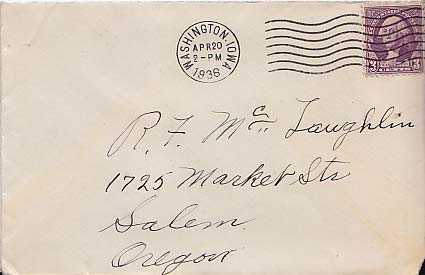 WASHINGTON, IOWA
APR 20
2 - PM
1936
3 3
R. F. McLaughlin
1725 Market Str
Salem
Oregon